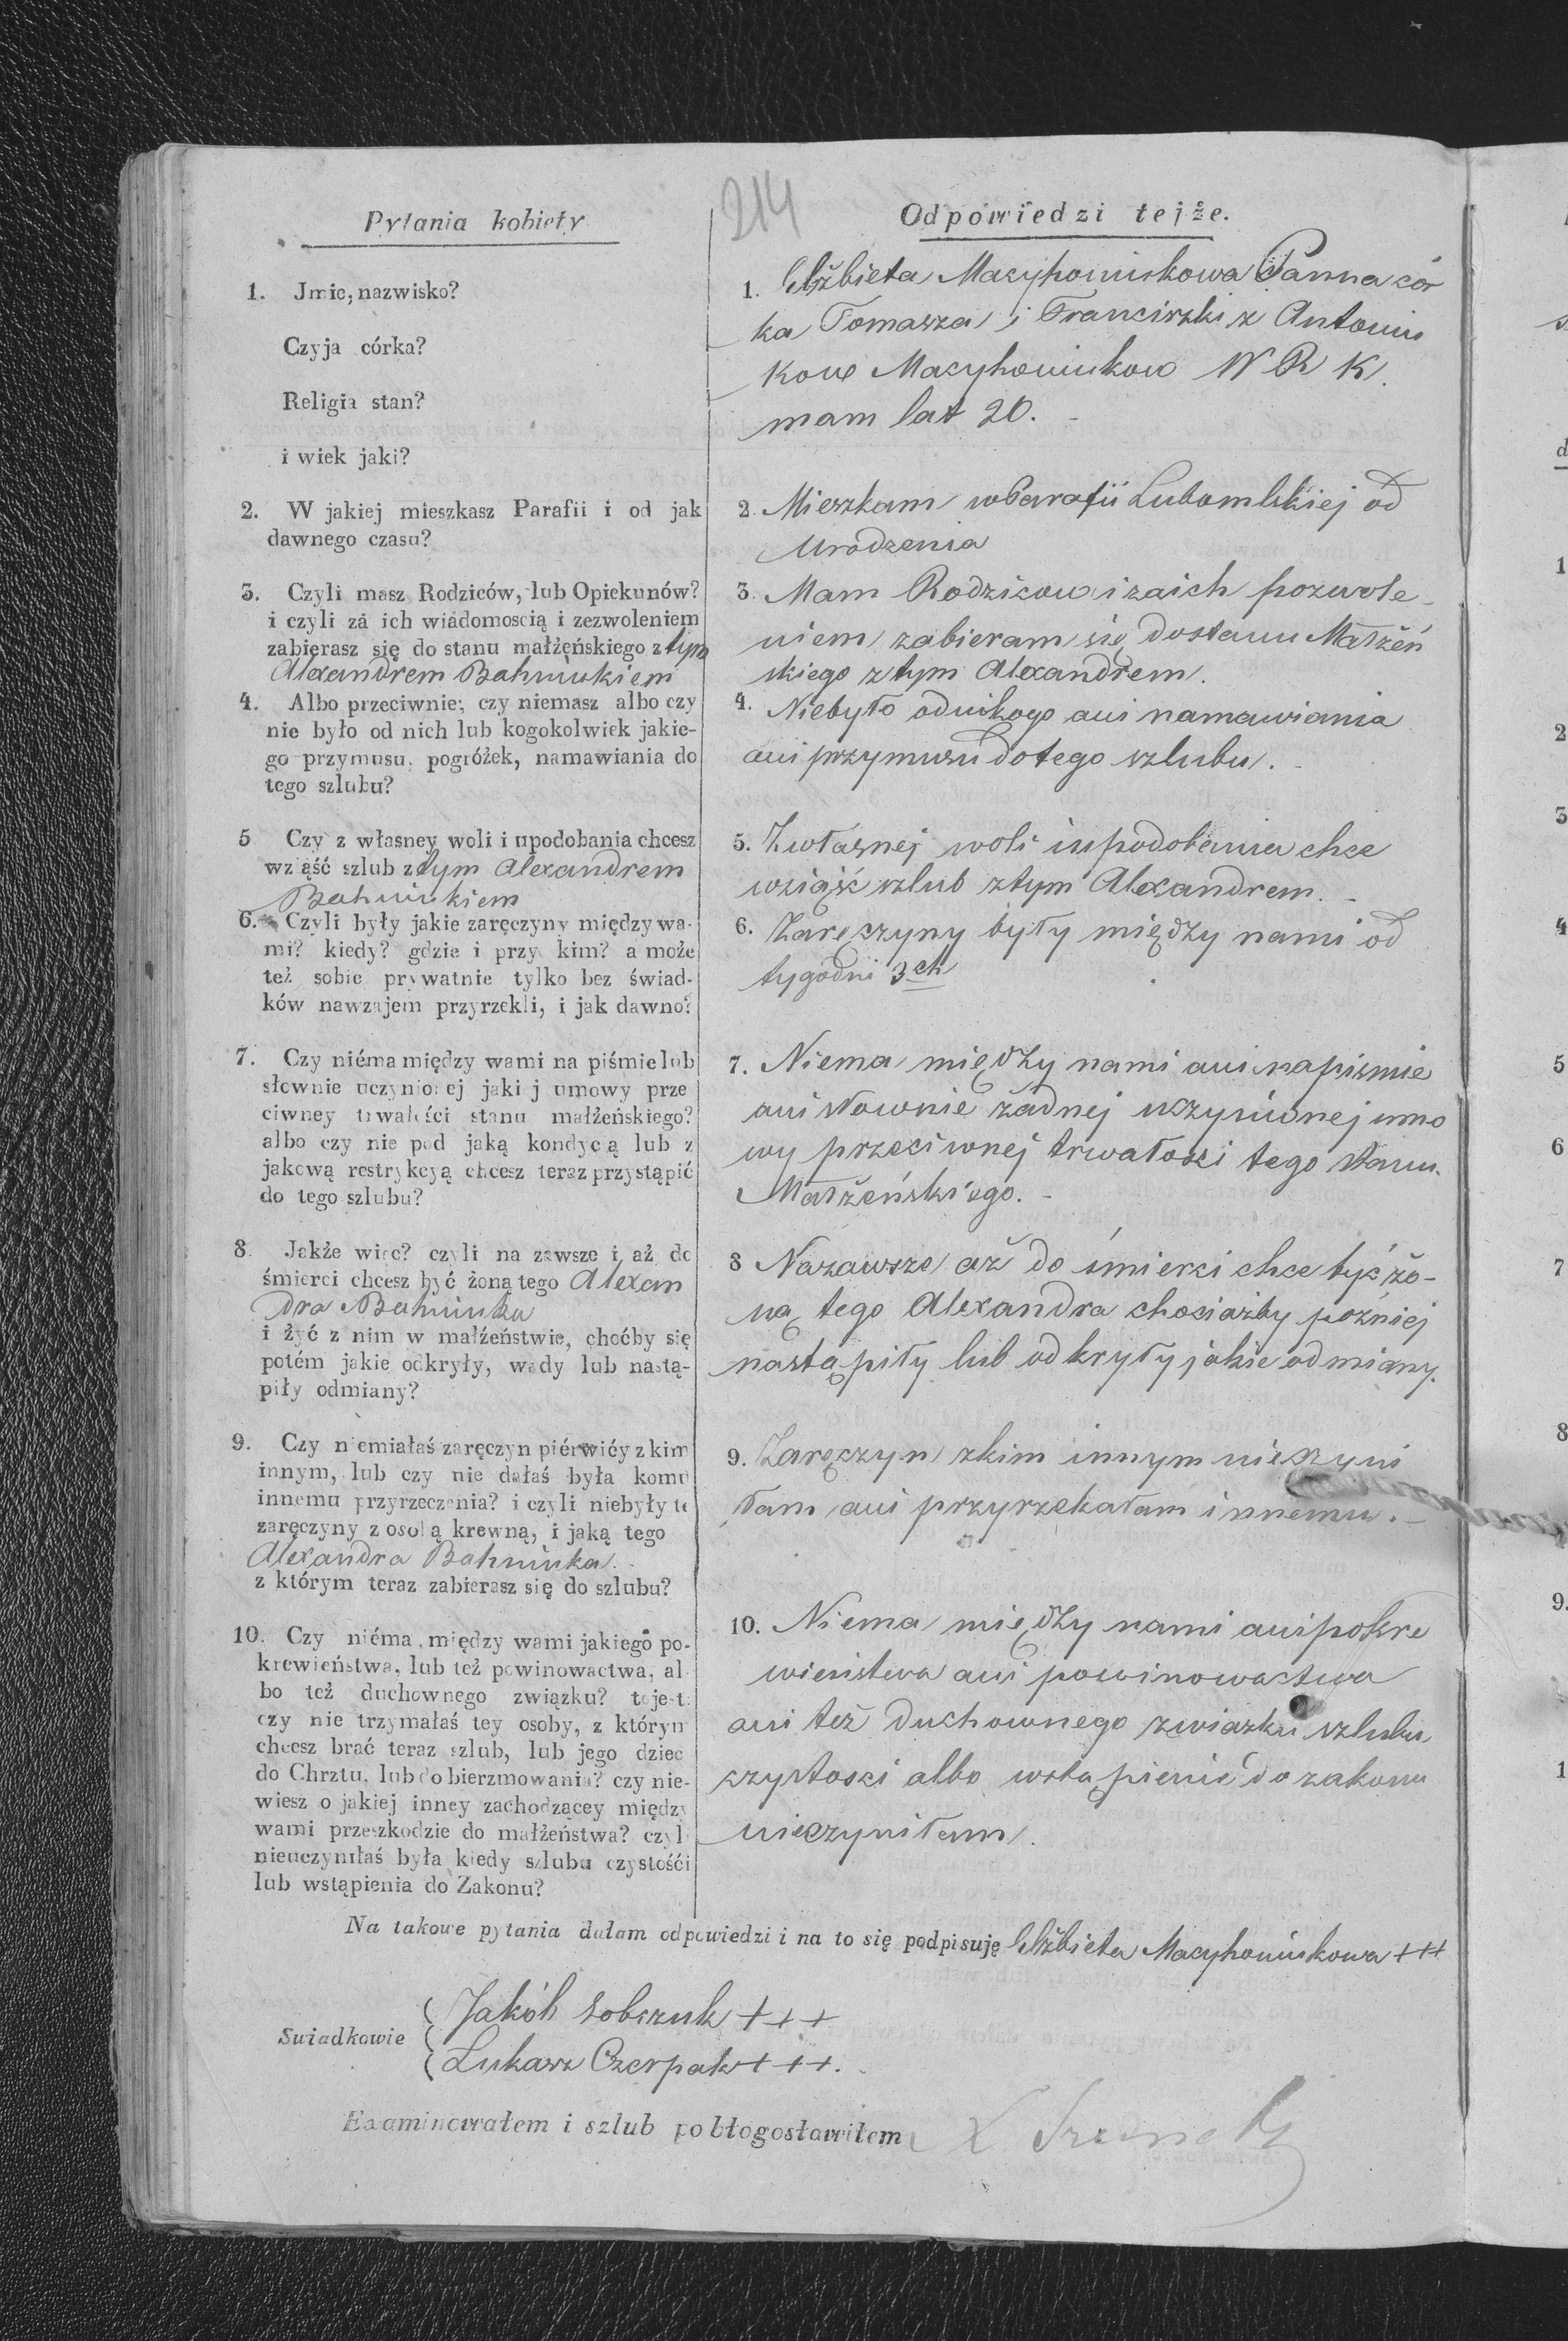 214
Pytania kobiety
1. Jmie, nazwisko?
Czyja córka?
Religia stan?
i wiek jaki?
2. W jakiej mieszkasz Parafii i od jak
dawnego czasu?
3. Czyli masz Rodziców, lub Opiekunów?
i czyli zá ich wiádomoscią i zezwoleniem
zabierasz się do stanu małżeńskiego z tym
Alexandrem Bahniukiem
4. Albo przeciwnie; czy niemasz albo czy
nie było od nich lub kogokolwiek jakie-
go przymusu, pogróżek, namawiania do
tego szlubu?
5 Czy z własney woli i upodobania chcesz
wziąść szlub z tym Alexandrem
Bahniukiem
6. Czyli były jakie zaręczyny między wa-
mi? kiedy? gdzie i przy kim? a może
też sobie prywatnie tylko bez świad-
ków nawzajem przyrzekli, i jak dawno?
7. Czy niéma między wami na piśmie lub
słownie uczynionej jakiej umowy prze
ciwney trwałości stanu małżeńskiego?
albo czy nie pod jaką kondycą lub z
jakową restrykcyą chcesz teraz przystąpić
do tego szlubu?
8. Jakże więc? czyli na zawsze i aż do
śmierci chcesz być żoną tego Alexan
dra Bahniuka
i żyć z nim w małżeństwie, choćby się
potém jakie odkryły, wady lub nastą-
piły odmiany?
9. Czy niemiałaś zaręczyn piérwiéy z kim
innym, lub czy nie dałaś była komu
innemu przyrzeczenia? i czyli niebyły te
zaręczyny z osobą krewną, i jaką tego
Alexandra Bahniuka
z którym teraz zabierasz się do szlubu?
10. Czy niéma między wami jakiego po-
krewieństwa, lub też powinowactwa, al
bo też duchownego związku? tojest:
czy nie trzymałaś tey osoby, z którym
chcesz brać teraz szlub, lub jego dzieci
do Chrztu, lub do bierzmowania? czy nie-
wiesz o jakiej inney zachodzącey między
wami przeszkodzie do małżeństwa? czyli
nieuczyniłaś była kiedy szlubu czystości
lub wstąpienia do Zakonu?
Odpowiedzi tejże.
1. Elżbieta Macyhoniukowa Panna cór
ka Tomasza i Franciszki z Antoniu
kow Macyhoniukow W R K.
mam lat 20.
2. Mieszkam w Parafii Lubomlskiej od
Urodzenia
3. Mam Rodzicow i za ich pozwole-
niem zabieram się do stanu Małżeń
skiego z tym Alexandrem.
4. Niebyło od nikogo ani namawiania
ani przymusu do tego szlubu.
5. Z własnej woli i upodobania chce
wziąść szlub z tym Alexandrem.
6. Zaręczyny były między nami od
tygodni 3ch
7. Niema między nami ani na pismie
ani słownie żadnej uczynionej umo
wy przeciwnej trwałosci tego stanu
Małżeńskiego.
8 Nazawsze aż do śmierci chce być żo-
ną tego Alexandra chociażby poźniej
nastąpiły lub odkryły jakie odmiany.
9. Zaręczyn z kim innym nieczyni
łam ani przyrzekałam innemu.
10. Niema między nami ani pokre
wieństwa ani powinowactwa
ani też duchownego związku szlubu
czystosci albo wstąpienie do zakonu
nieczyniłam.
Na takowe pytania dałam odpowiedzi i na to się podpisuję Elżbieta Macyhoniukowa +++
Jakób Sobczuk +++
Swiadkowie
Łukasz Czerpak +++.
Examinowałem i szlub pobłogosławiłem X.